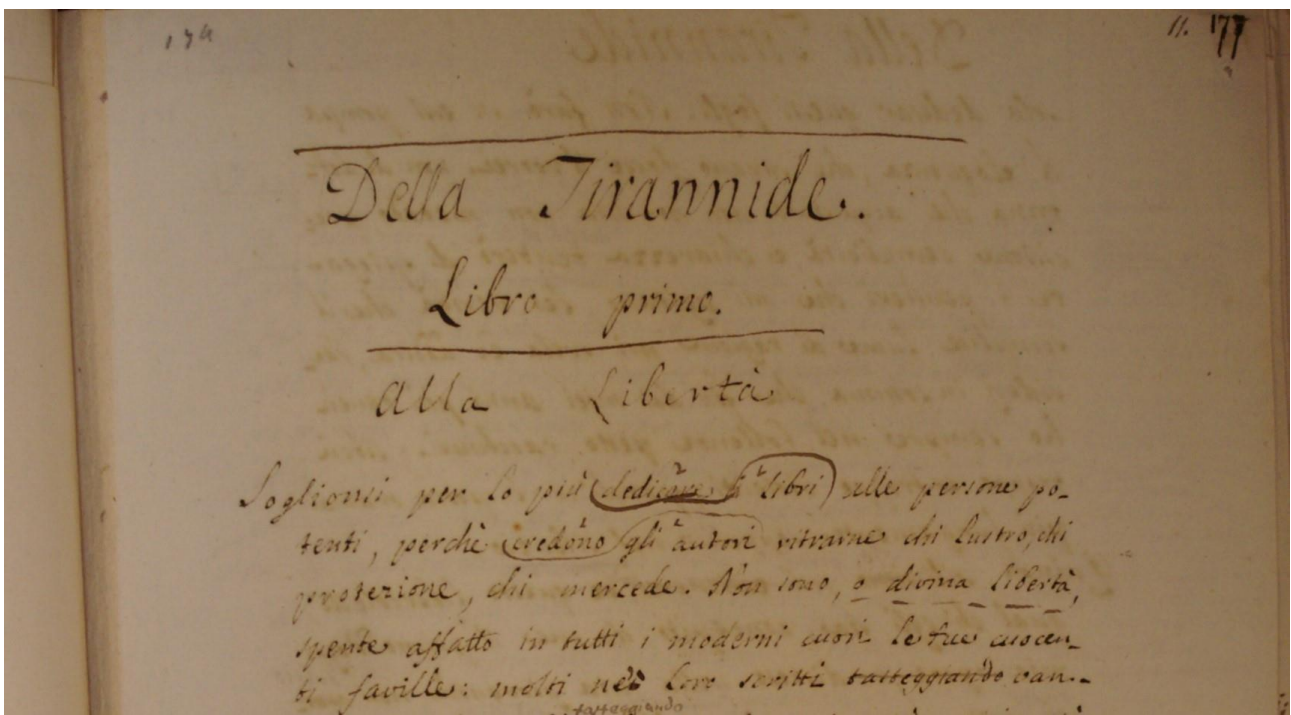 174
11. 177
Della Tirannide.
Libro primo.
Alla Libertà
Soglionsi per lo più dedicare i libri alle persone po-
tenti, perchè credono gli autori ritrarne chi lustro, chi
protezione, chi mercede. Non sono, o divina libertà,
spente affatto in tutti i moderni cuori le tue cocen-
ti faville: molti nei loro scritti tasteggiando van-
tasteggiando